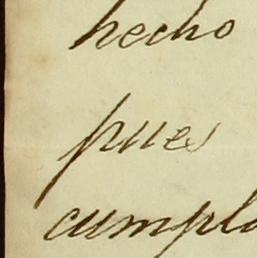 hecho
pues
cumpla